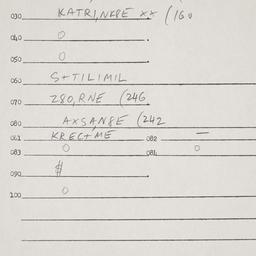 030 KATRI,NKPE xx (160
040 0
050 0
060 S+TILIMIL
070 280,RNE (246
080 AXSAN8E (242
061 KRECTME 082 —
083 0 084 0
090 $
100 0